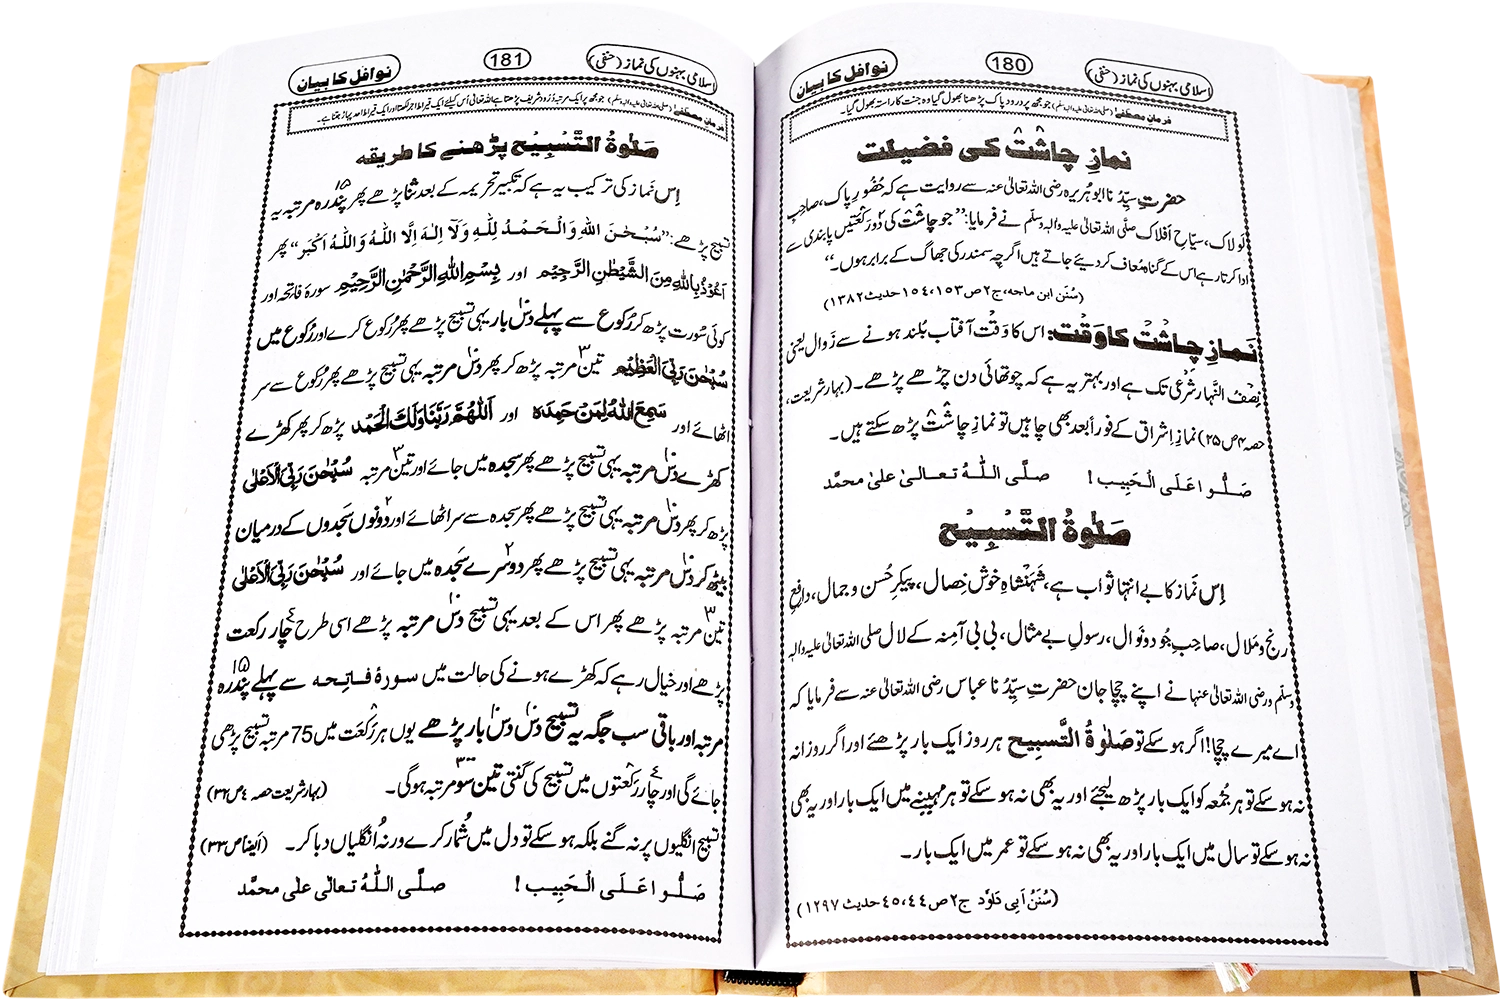 اسلامی بہنوں کی نماز (حنفی)
180
نوافل کا بیان
فرمانِ مصطفےٰ (صلی اللہ تعالیٰ علیہ والہٖ وسلم) جو مجھ پر درود پاک پڑھنا بھول گیا وہ جنت کا راستہ بھول گیا۔
نمازِ چاشْتْ کی فضیلت
حضرتِ سیِّدُنا ابوہُریرہ رضی اللہ تعالیٰ عنہ سے روایت ہے کہ حُضُورِ پاک، صاحِبِ
لَولاک، سیّاحِ اَفلاک صلَّی اللہ تعالیٰ علیہ والہٖ وسلَّم نے فرمایا: ”جو چاشْتْ کی دو رَکْعَتیں پابندی سے
ادا کرتا رہے اس کے گناہ مُعاف کردیئے جاتے ہیں اگرچِہ سمندر کی جھاگ کے برابر ہوں۔“
(سُنَن ابن ماجه، ج٢ ص ١٥٣، ١٥٤ حديث ١٣٨٢)
نَمازِ چاشْتْ کا وَقْت: اس کا وَقْت آفتاب بُلند ہونے سے زَوال یعنی
نِصْفُ النَّہار شَرْعی تک ہے اور بہتر یہ ہے کہ چوتھائی دن چڑھے پڑھے۔ (بہارِ شریعت،
حصہ ۴ ص ۲۵) نَمازِ اِشراق کے فوراً بعد بھی چاہیں تو نمازِ چاشْتْ پڑھ سکتے ہیں۔
صَلُّوا عَلَى الْحَبِيب ! صلَّى اللهُ تعالىٰ علىٰ محمَّد
صَلٰوةُ التَّسْبِیْح
اِس نَماز کا بے انتہا ثواب ہے، شَہَنْشاہِ خوش خِصال، پیکرِ حُسن و جمال، دافِعِ
رنج و مَلال، صاحِبِ جُود و نَوال، رسولِ بے مثال، بی بی آمِنہ کے لال صلَّی اللہ تعالیٰ علیہ والہٖ
وسلَّم و رضی اللہ تعالیٰ عنہا نے اپنے چچا جان حضرتِ سیِّدُنا عباس رضی اللہ تعالیٰ عنہ سے فرمایا کہ
اے میرے چچا! اگر ہو سکے تو صَلٰوةُ التَّسبِیح ہر روز ایک بار پڑھئے اور اگر روزانہ
نہ ہوسکے تو ہر جُمُعہ کو ایک بار پڑھ لیجئے اور یہ بھی نہ ہوسکے تو ہر مہینے میں ایک بار اور یہ بھی
نہ ہوسکے تو سال میں ایک بار اور یہ بھی نہ ہوسکے تو عمر میں ایک بار۔
(سُنَنُ اَبِی دَاوٗد ج٢ ص ٤٤، ٤٥ حديث ١٢٩٧)
اسلامی بہنوں کی نماز (حنفی)
181
نوافل کا بیان
فرمانِ مصطفےٰ (صلی اللہ تعالیٰ علیہ والہٖ وسلم) جو مجھ پر ایک مرتبہ دُرُود شریف پڑھتا ہے اللہ تعالیٰ اُس کیلئے ایک قیراط اجر لکھتا اور ایک قیراط اُحد پہاڑ جتنا ہے۔
صَلٰوةُ التَّسْبِیْح پڑھنے کا طریقہ
اِس نَماز کی ترکیب یہ ہے کہ تکبیرِ تحریمہ کے بعد ثنا پڑھے پھر پندرہ ۱۵ مرتبہ یہ
تسبیح پڑھے: ”سُبْحٰنَ اللهِ وَالْحَمْدُ لِلّٰهِ وَلَآ اِلٰهَ اِلَّا اللهُ وَاللهُ اَكْبَر“ پھر
اَعُوْذُ بِاللهِ مِنَ الشَّيْطٰنِ الرَّجِيْم اور بِسْمِ اللهِ الرَّحْمٰنِ الرَّحِيْم سورۂ فاتحہ اور
کوئی سُورت پڑھ کر رُکوع سے پہلے دس۱۰ بار یہی تسبیح پڑھے پھر رُکوع کرے اور رُکوع میں
سُبْحٰنَ رَبِّیَ الْعَظِيْم تین۳ مرتبہ پڑھ کر پھر دس۱۰ مرتبہ یہی تسبیح پڑھے پھر رُکوع سے سر
اٹھائے اور سَمِعَ اللهُ لِمَنْ حَمِدَهٗ اور اَللّٰهُمَّ رَبَّنَا وَلَكَ الْحَمْد پڑھ کر پھر کھڑے
کھڑے دس۱۰ مرتبہ یہی تسبیح پڑھے پھر سجدہ میں جائے اور تین۳ مرتبہ سُبْحٰنَ رَبِّیَ الْاَعْلٰی
پڑھ کر پھر دس۱۰ مرتبہ یہی تسبیح پڑھے پھر سجدہ سے سر اٹھائے اور دونوں۲ سَجدوں کے درمیان
بیٹھ کر دس۱۰ مرتبہ یہی تسبیح پڑھے پھر دوسرے۲ سَجدہ میں جائے اور سُبْحٰنَ رَبِّیَ الْاَعْلٰی
تین۳ مرتبہ پڑھے پھر اس کے بعد یہی تسبیح دس۱۰ مرتبہ پڑھے اسی طرح چار۴ رکعت
پڑھے اور خیال رہے کہ کھڑے ہونے کی حالت میں سورۂ فاتِحہ سے پہلے پندرہ۱۵
مرتبہ اور باقی سب جگہ یہ تسبیح دس۱۰ دس۱۰ بار پڑھے یوں ہر رَکْعَت میں 75 مرتبہ تسبیح پڑھی
جائے گی اور چار۴ رَکْعتوں میں تسبیح کی گنتی تین سو۳۰۰ مرتبہ ہوگی۔ (بہارِ شریعت حصہ ۴ ص ۳۲)
تسبیح انگلیوں پر نہ گِنے بلکہ ہو سکے تو دل میں شُمار کرے ورنہ اُنگلیاں دبا کر۔ (اَیضاً ص ۳۳)
صَلُّوا عَلَى الْحَبِيب ! صلَّى اللهُ تعالىٰ علىٰ محمَّد